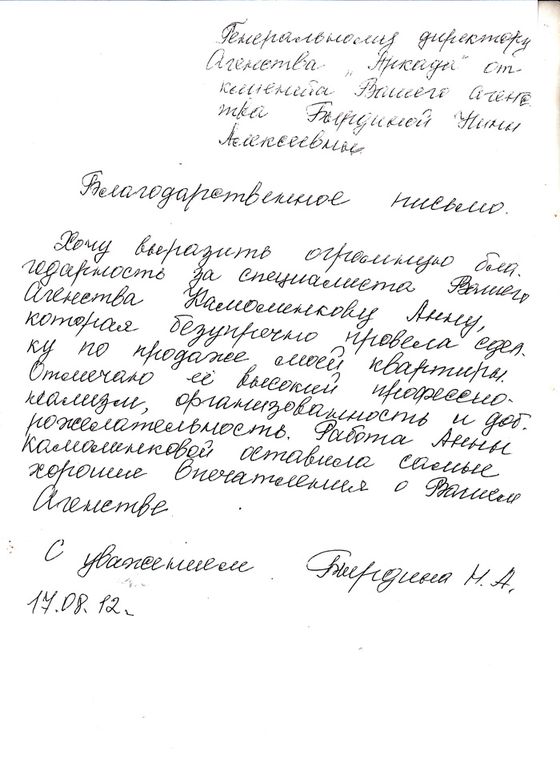 Генеральному директору
Агенства „Аркада" от
клиента Вашего агенс
тва Бырдиной Нины
Алексеевны
Благодарственное письмо.
Хочу выразить огромную бла-
годарность за специалиста Вашего
Агенства Камоменкову Анну,
которая безупречно провела сдел-
ку по продаже моей квартиры.
Отмечаю её высокий професио-
нализм, организованность и доб-
рожелательность. Работа Анны
Камоминковой оставила самые
хорошие впечатления о Вашем
Агенстве
С уважением Бырдина Н.А.
17.08.12.